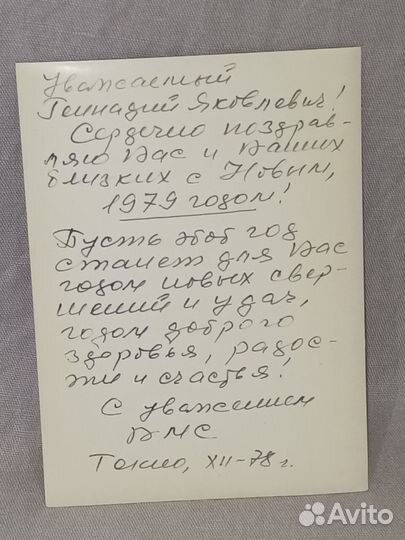 Уважаемый
Геннадий Яковлевич!
Сердечно поздрав-
ляю Вас и Ваших
близких с Новым,
1979 годом!
Пусть этот год
станет для Вас
годом новых свер-
шений и удач,
годом доброго
здоровья, радос-
ти и счастья!
С уважением
ВМС
Токио, XII-78 г.
Avito